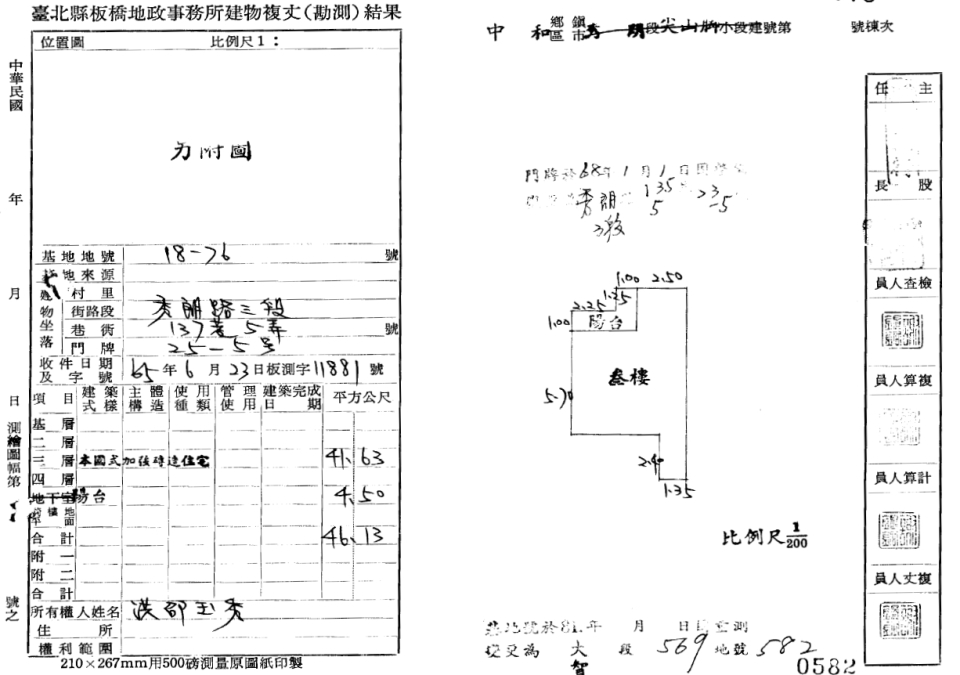 臺北縣板橋地政事務所建物複丈(勘測)結果
位置圖 比例尺1:
另附圖
中華民國 年 月 日 測繪圖幅第 號之
基地地號 18-76 號
地來源
村里
街路段 秀朗路三段
巷衖 137巷5弄 號
門牌 25-5号
建物坐落
收件日期及字號 65年6月23日板測字11881號
項目 建築式樣 主體構造 使用種類 管理使用 建築完成日期 平方公尺
基層
二層
三層 本國式 加強磚造 住宅 41.63
四層
地下室 陽台 4.50
平面
合計 46.13
附一
附二
合計
所有權人姓名 洪邵玉秀
住所
權利範圍
210×267mm用500磅測量原圖紙印製
中和 鄉鎮區市 秀朗段尖山脚小段建號第 號棟次
門牌於68年1月1日
秀朗 135 23
5 -5
3段
1.00 2.50
1.25
2.25
1.00 陽台
叁樓
5.70
2.40
1.35
比例尺 1/200
基地號於81年 月 日 重測
變更為 大智 段 569 地號 582
0582
主任
股長
檢查人員
複算人員
計算人員
複丈人員